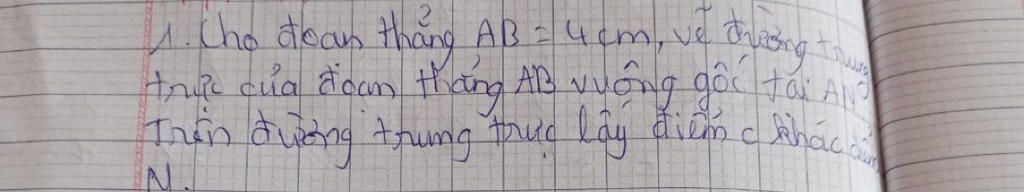 1. Cho đoạn thẳng AB = 4cm, vẽ đường trung
trực của đoạn thẳng AB vuông góc tại
Trên đường trung trực lấy điểm C khác
N.